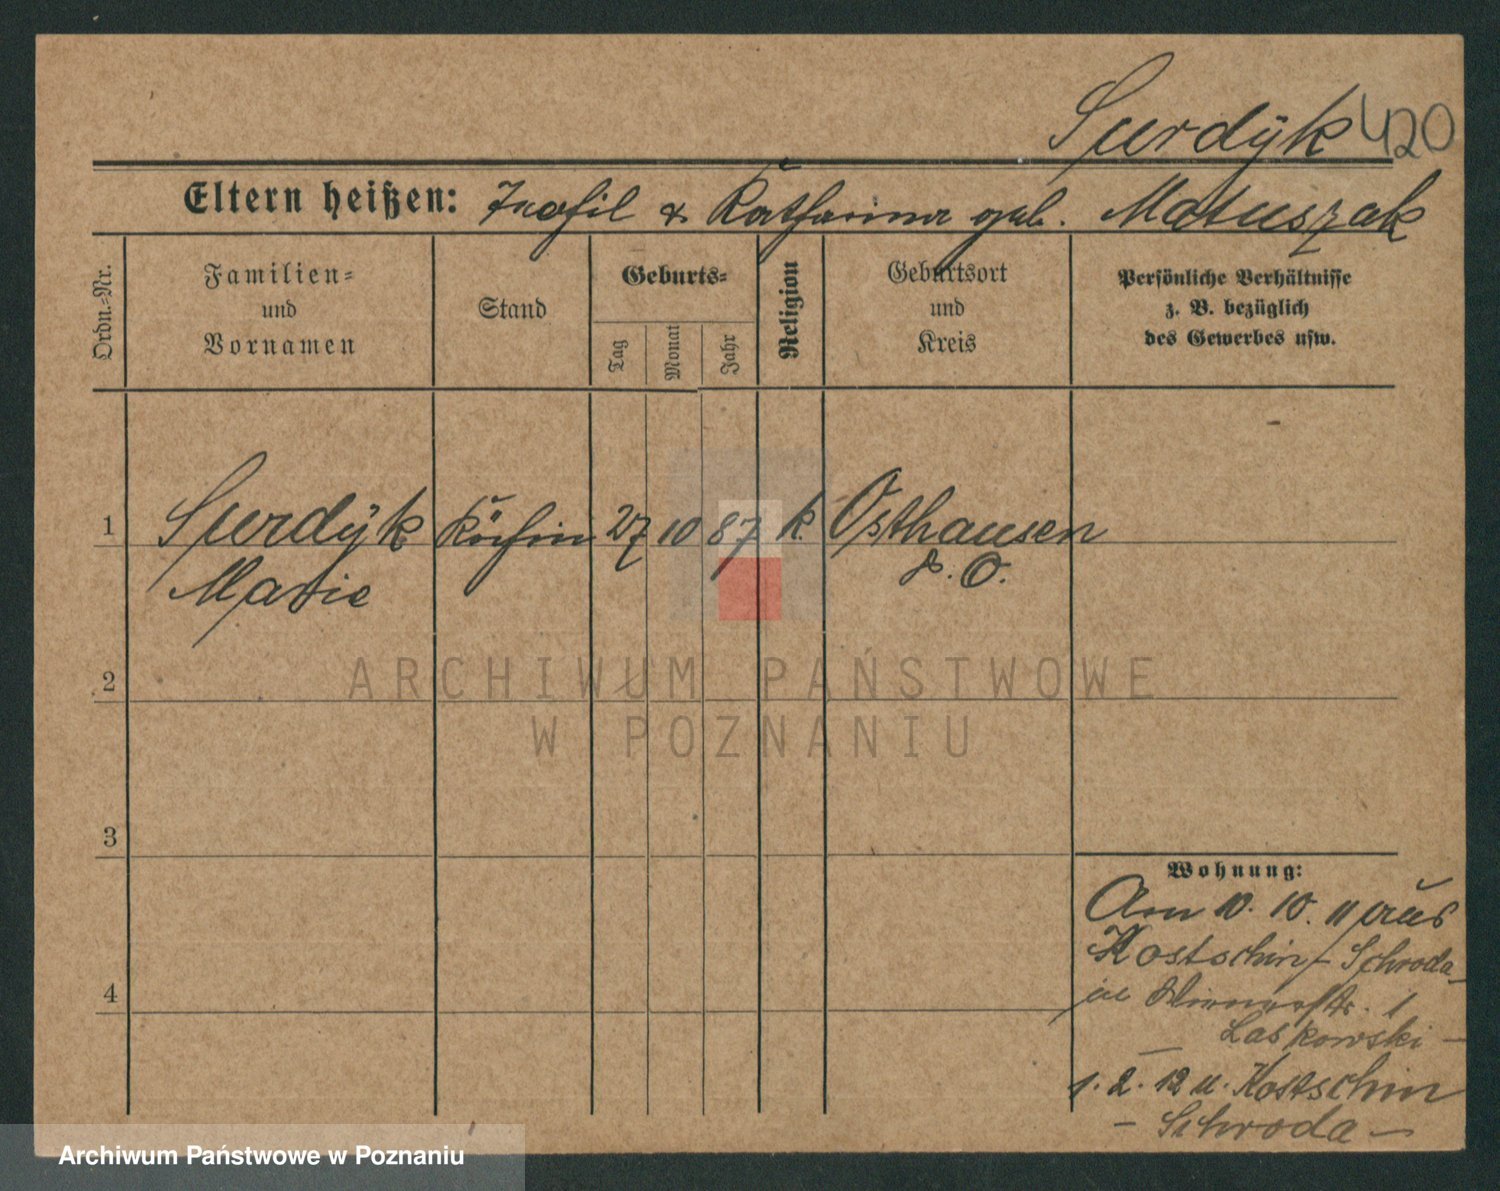 Surdyk 420
Eltern heißen: Teofil & Katharina geb. Matuszak
Ordn.-Nr.
Familien-
und
Vornamen
Stand
Geburts-
Tag
Monat
Jahr
Religion
Geburtsort
und
Kreis
Persönliche Verhältnisse
z. B. bezüglich
des Gewerbes usw.
1 Surdyk Köchin 27 10 87 k. Osthausen
Marie
2
3
4
Wohnung:
Am 10. 10. 11 aus
Kostschin - Schroda -
1
Laskowski -
1. 2. 12 u. Kostschin
- Schroda -
ARCHIWUM PAŃSTWOWE
W POZNANIU
Archiwum Państwowe w Poznaniu